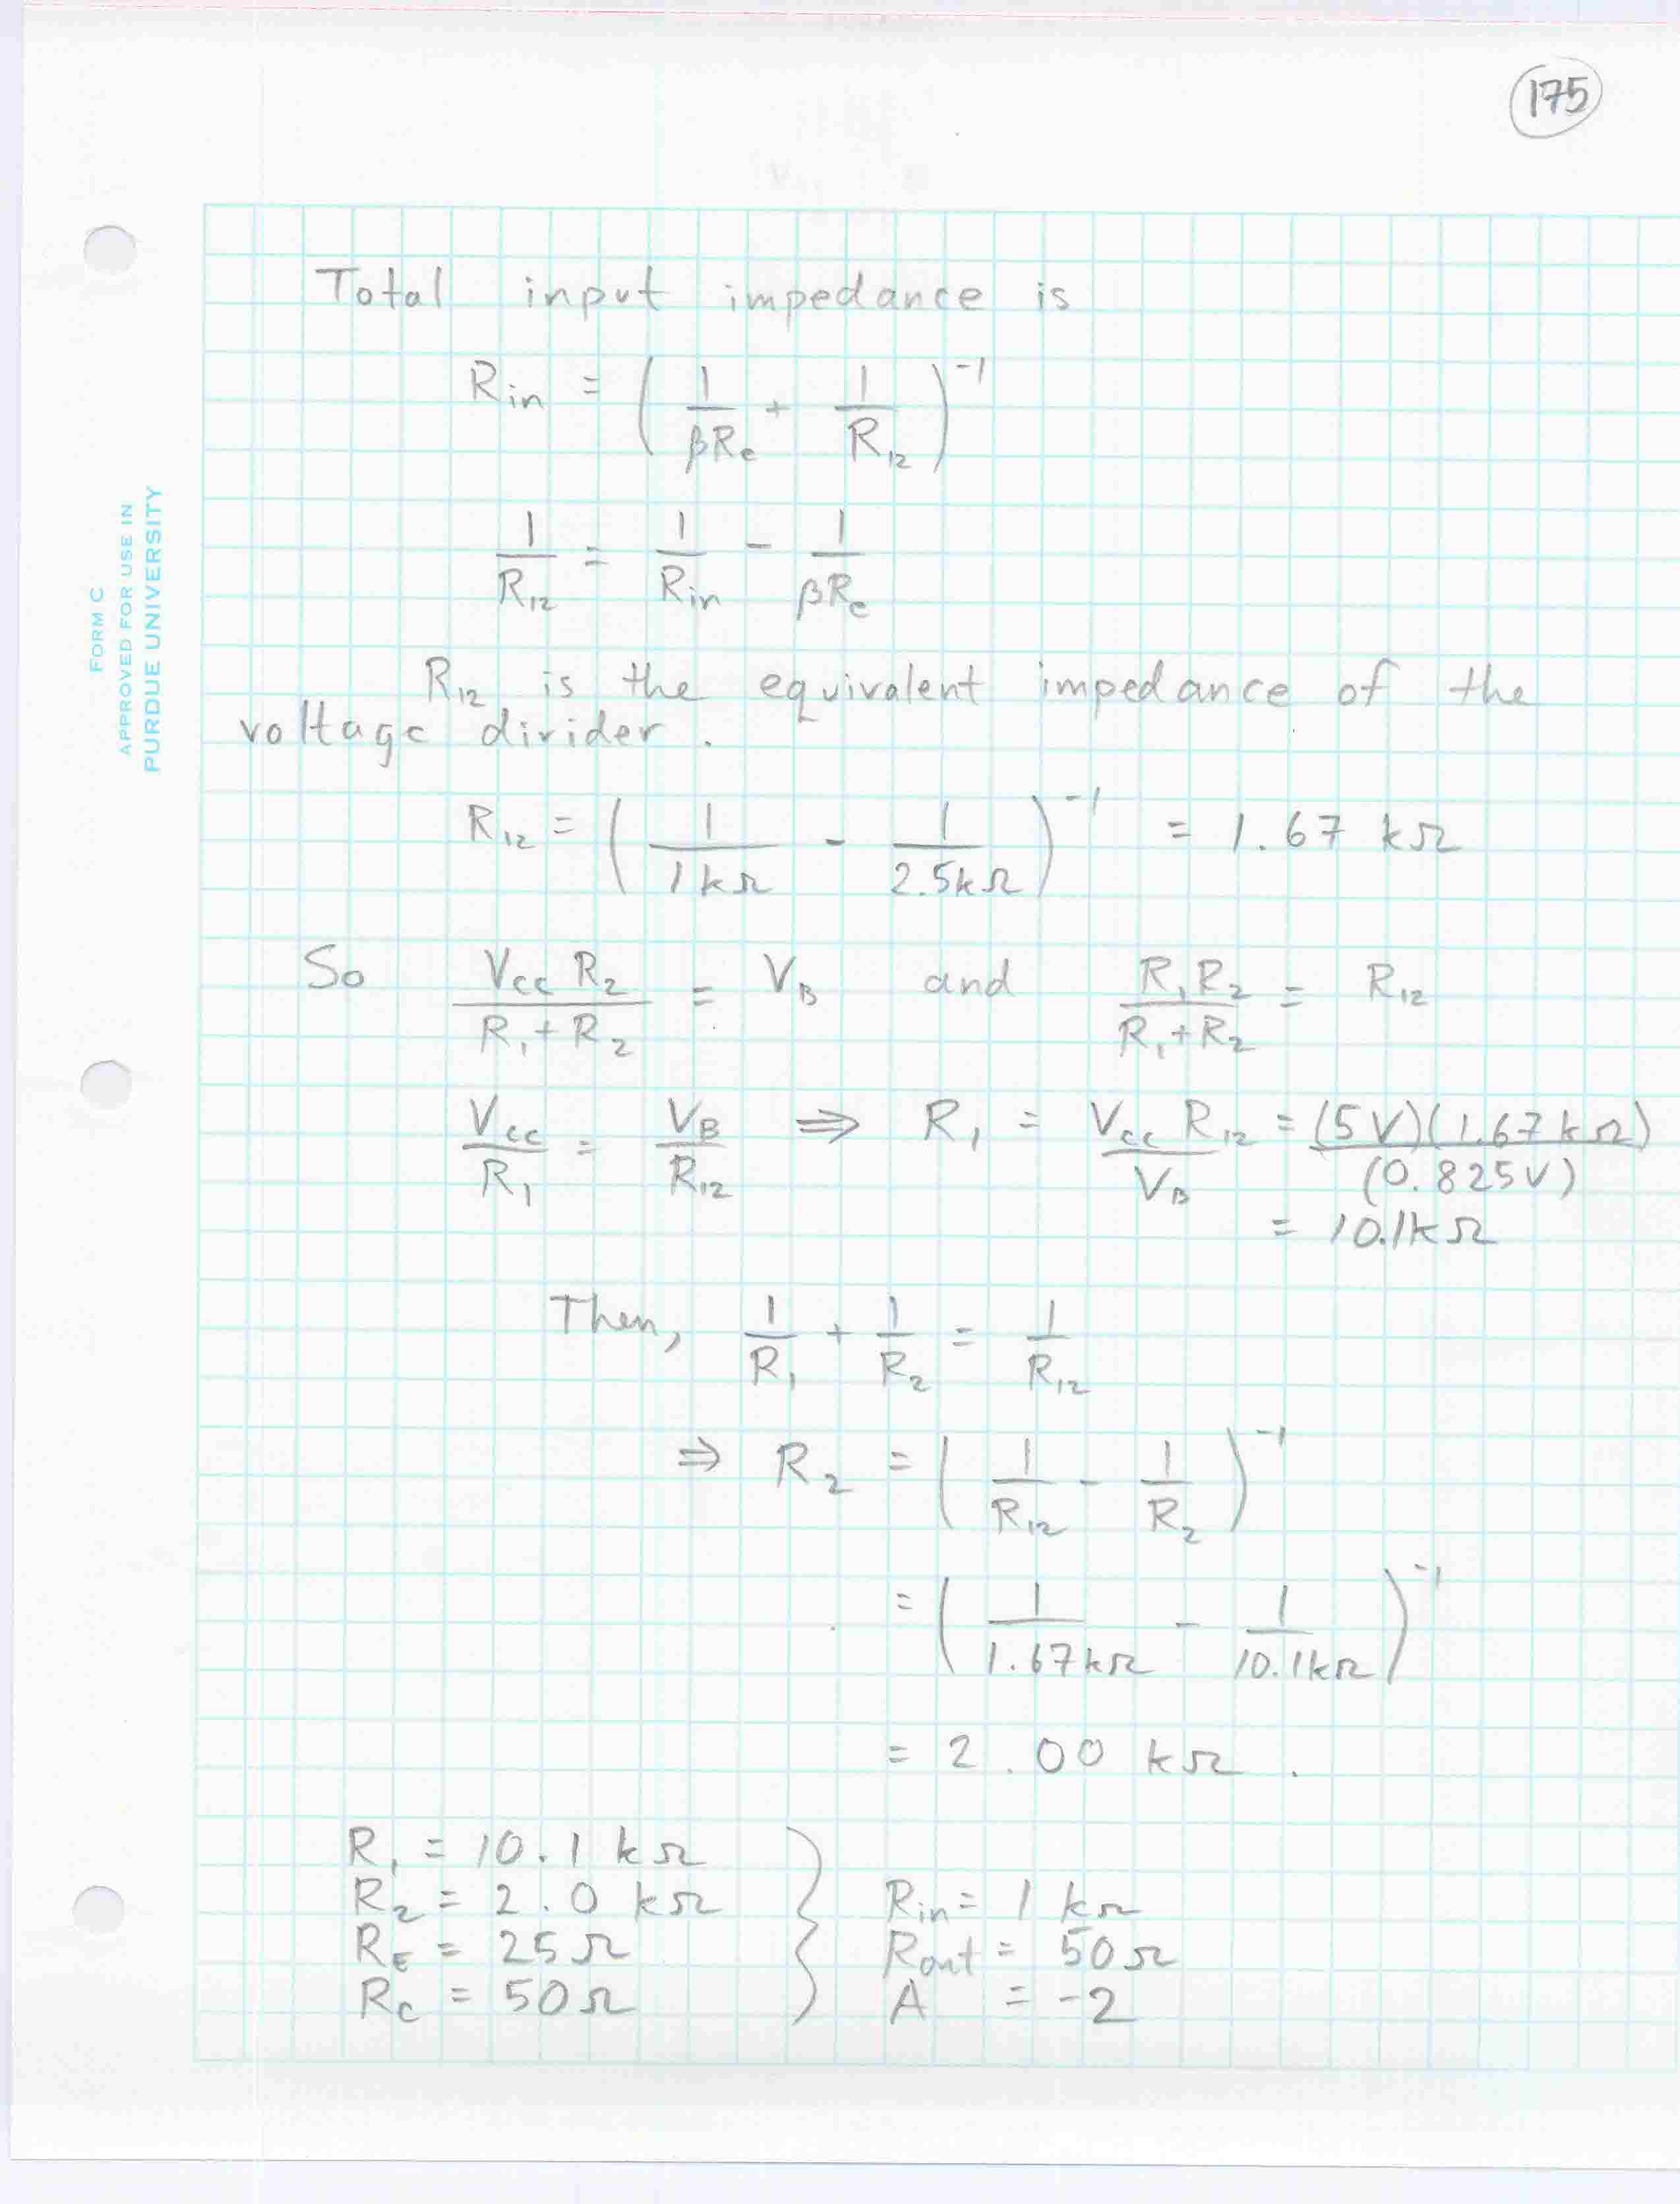 175
FORM C
APPROVED FOR USE IN
PURDUE UNIVERSITY
Total input impedance is
R_in = ( 1/βR_e + 1/R_12 )^-1
1/R_12 = 1/R_in - 1/βR_e
R_12 is the equivalent impedance of the
voltage divider.
R_12 = ( 1/1kΩ - 1/2.5kΩ )^-1 = 1.67 kΩ
So V_CC R_2/(R_1 + R_2) = V_B and R_1 R_2/(R_1 + R_2) = R_12
V_CC/R_1 = V_B/R_12 ⇒ R_1 = V_CC R_12/V_B = (5 V)(1.67 kΩ)/(0.825 V)
= 10.1kΩ
Then, 1/R_1 + 1/R_2 = 1/R_12
⇒ R_2 = ( 1/R_12 - 1/R_2 )^-1
= ( 1/1.67kΩ - 1/10.1kΩ )^-1
= 2.00 kΩ.
R_1 = 10.1 kΩ
R_2 = 2.0 kΩ } R_in = 1 kΩ
R_E = 25Ω R_out = 50Ω
R_C = 50Ω A = -2